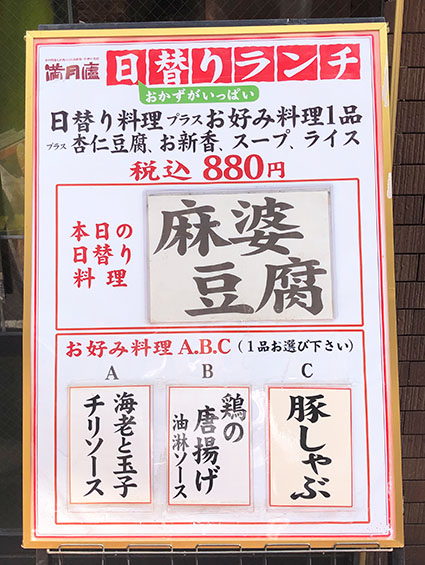 満月廬
日替りランチ
おかずがいっぱい
日替り料理プラスお好み料理1品
プラス杏仁豆腐、お新香、スープ、ライス
税込880円
本日の
日替り
料理
麻婆
豆腐
お好み料理A.B.C(1品お選び下さい)
A
海老と玉子
チリソース
B
鶏の
唐揚げ
油淋ソース
C
豚しゃぶ